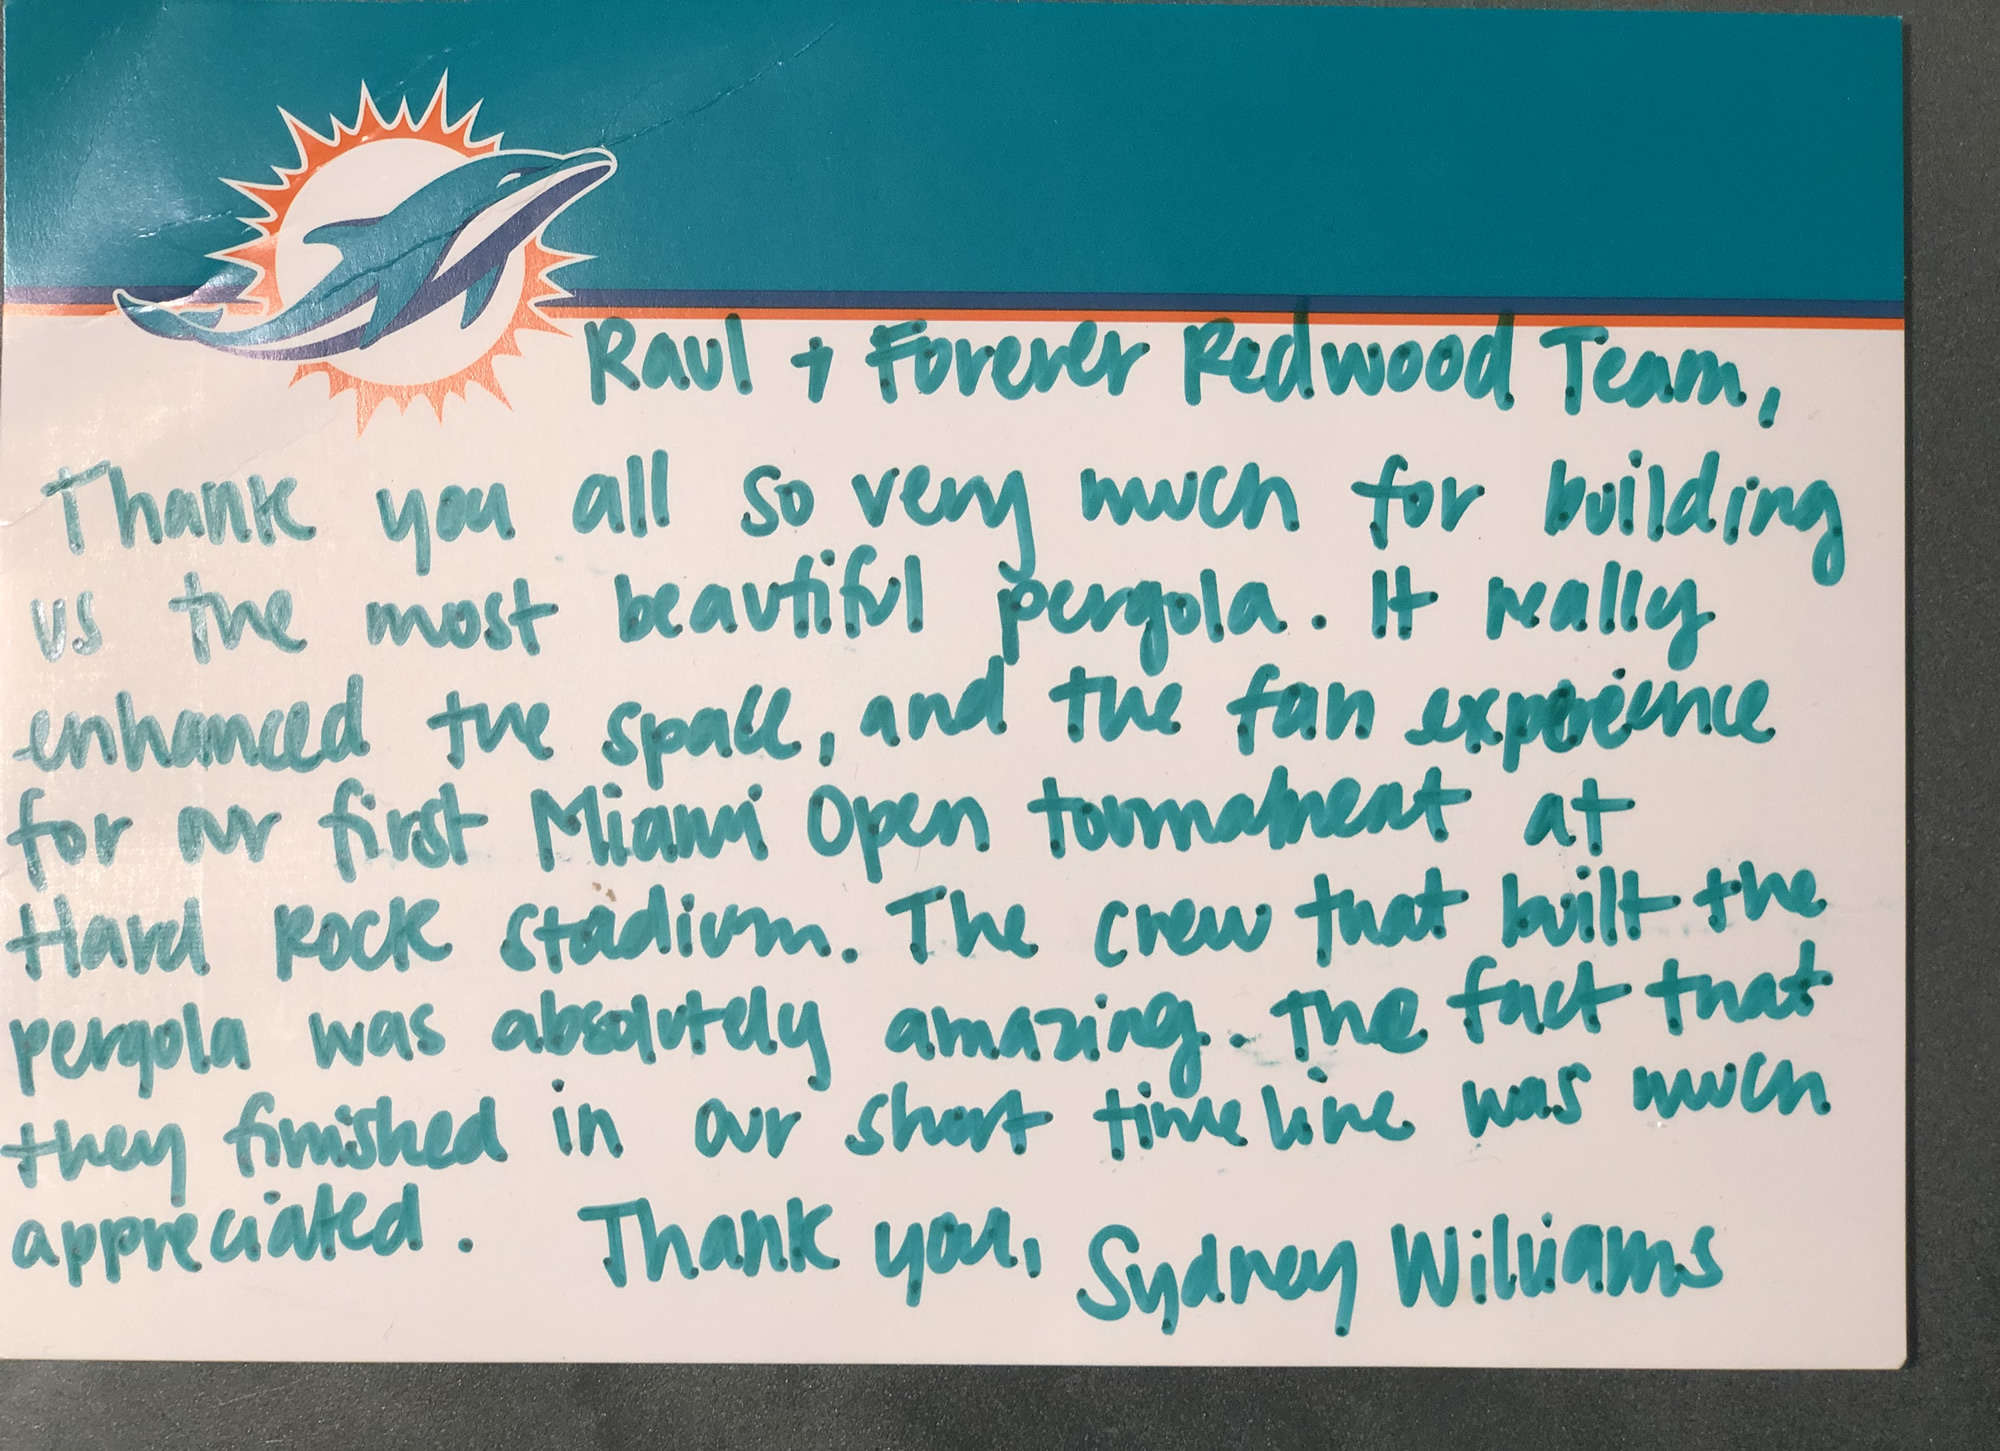 Raul + Forever Redwood Team,
Thank you all so very much for building
us the most beautiful pergola. It really
enhanced the space, and the fan experience
for our first Miami Open tournament at
Hard Rock Stadium. The crew that built the
pergola was absolutely amazing. The fact that
they finished in our short timeline was much
appreciated. Thank you, Sydney Williams